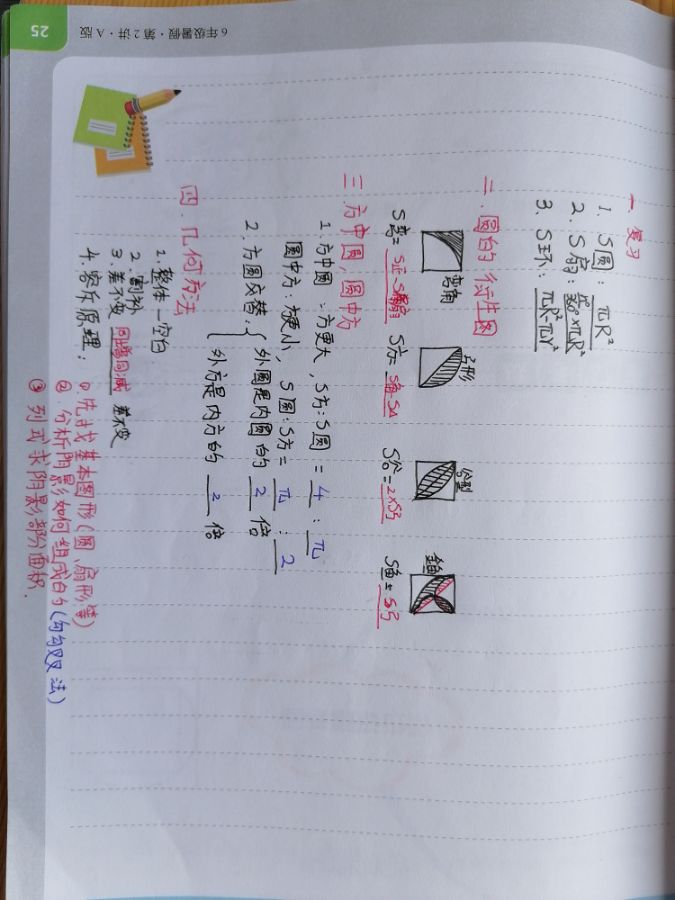 一. 复习
1. S圆: πR²
2. S扇: n°/360° × πR²
3. S环: πR²-πr²
二. 圆的衍生图
弯角 弓形 谷型 金鱼
S弯=S正-S扇 S弓=S扇-S△ S谷=2×S弓 S鱼=S弓
三. 方中圆, 圆中方
1. 方中圆: 方更大, S方:S圆=4:π
圆中方: 方更小, S圆:S方=π:2
2. 方圆交替:{外圆是内圆的2倍
外方是内方的2倍
四. 几何方法
1. 整体-空白
2. 割补
3. 差不变 同增同减 差不变
4. 容斥原理: ①. 先找基本图形(圆、扇形等)
②. 分析阴影如何组成的(勾勾叉叉法)
③ 列式求阴影部分面积.
6年级暑假·第2讲·A版 25